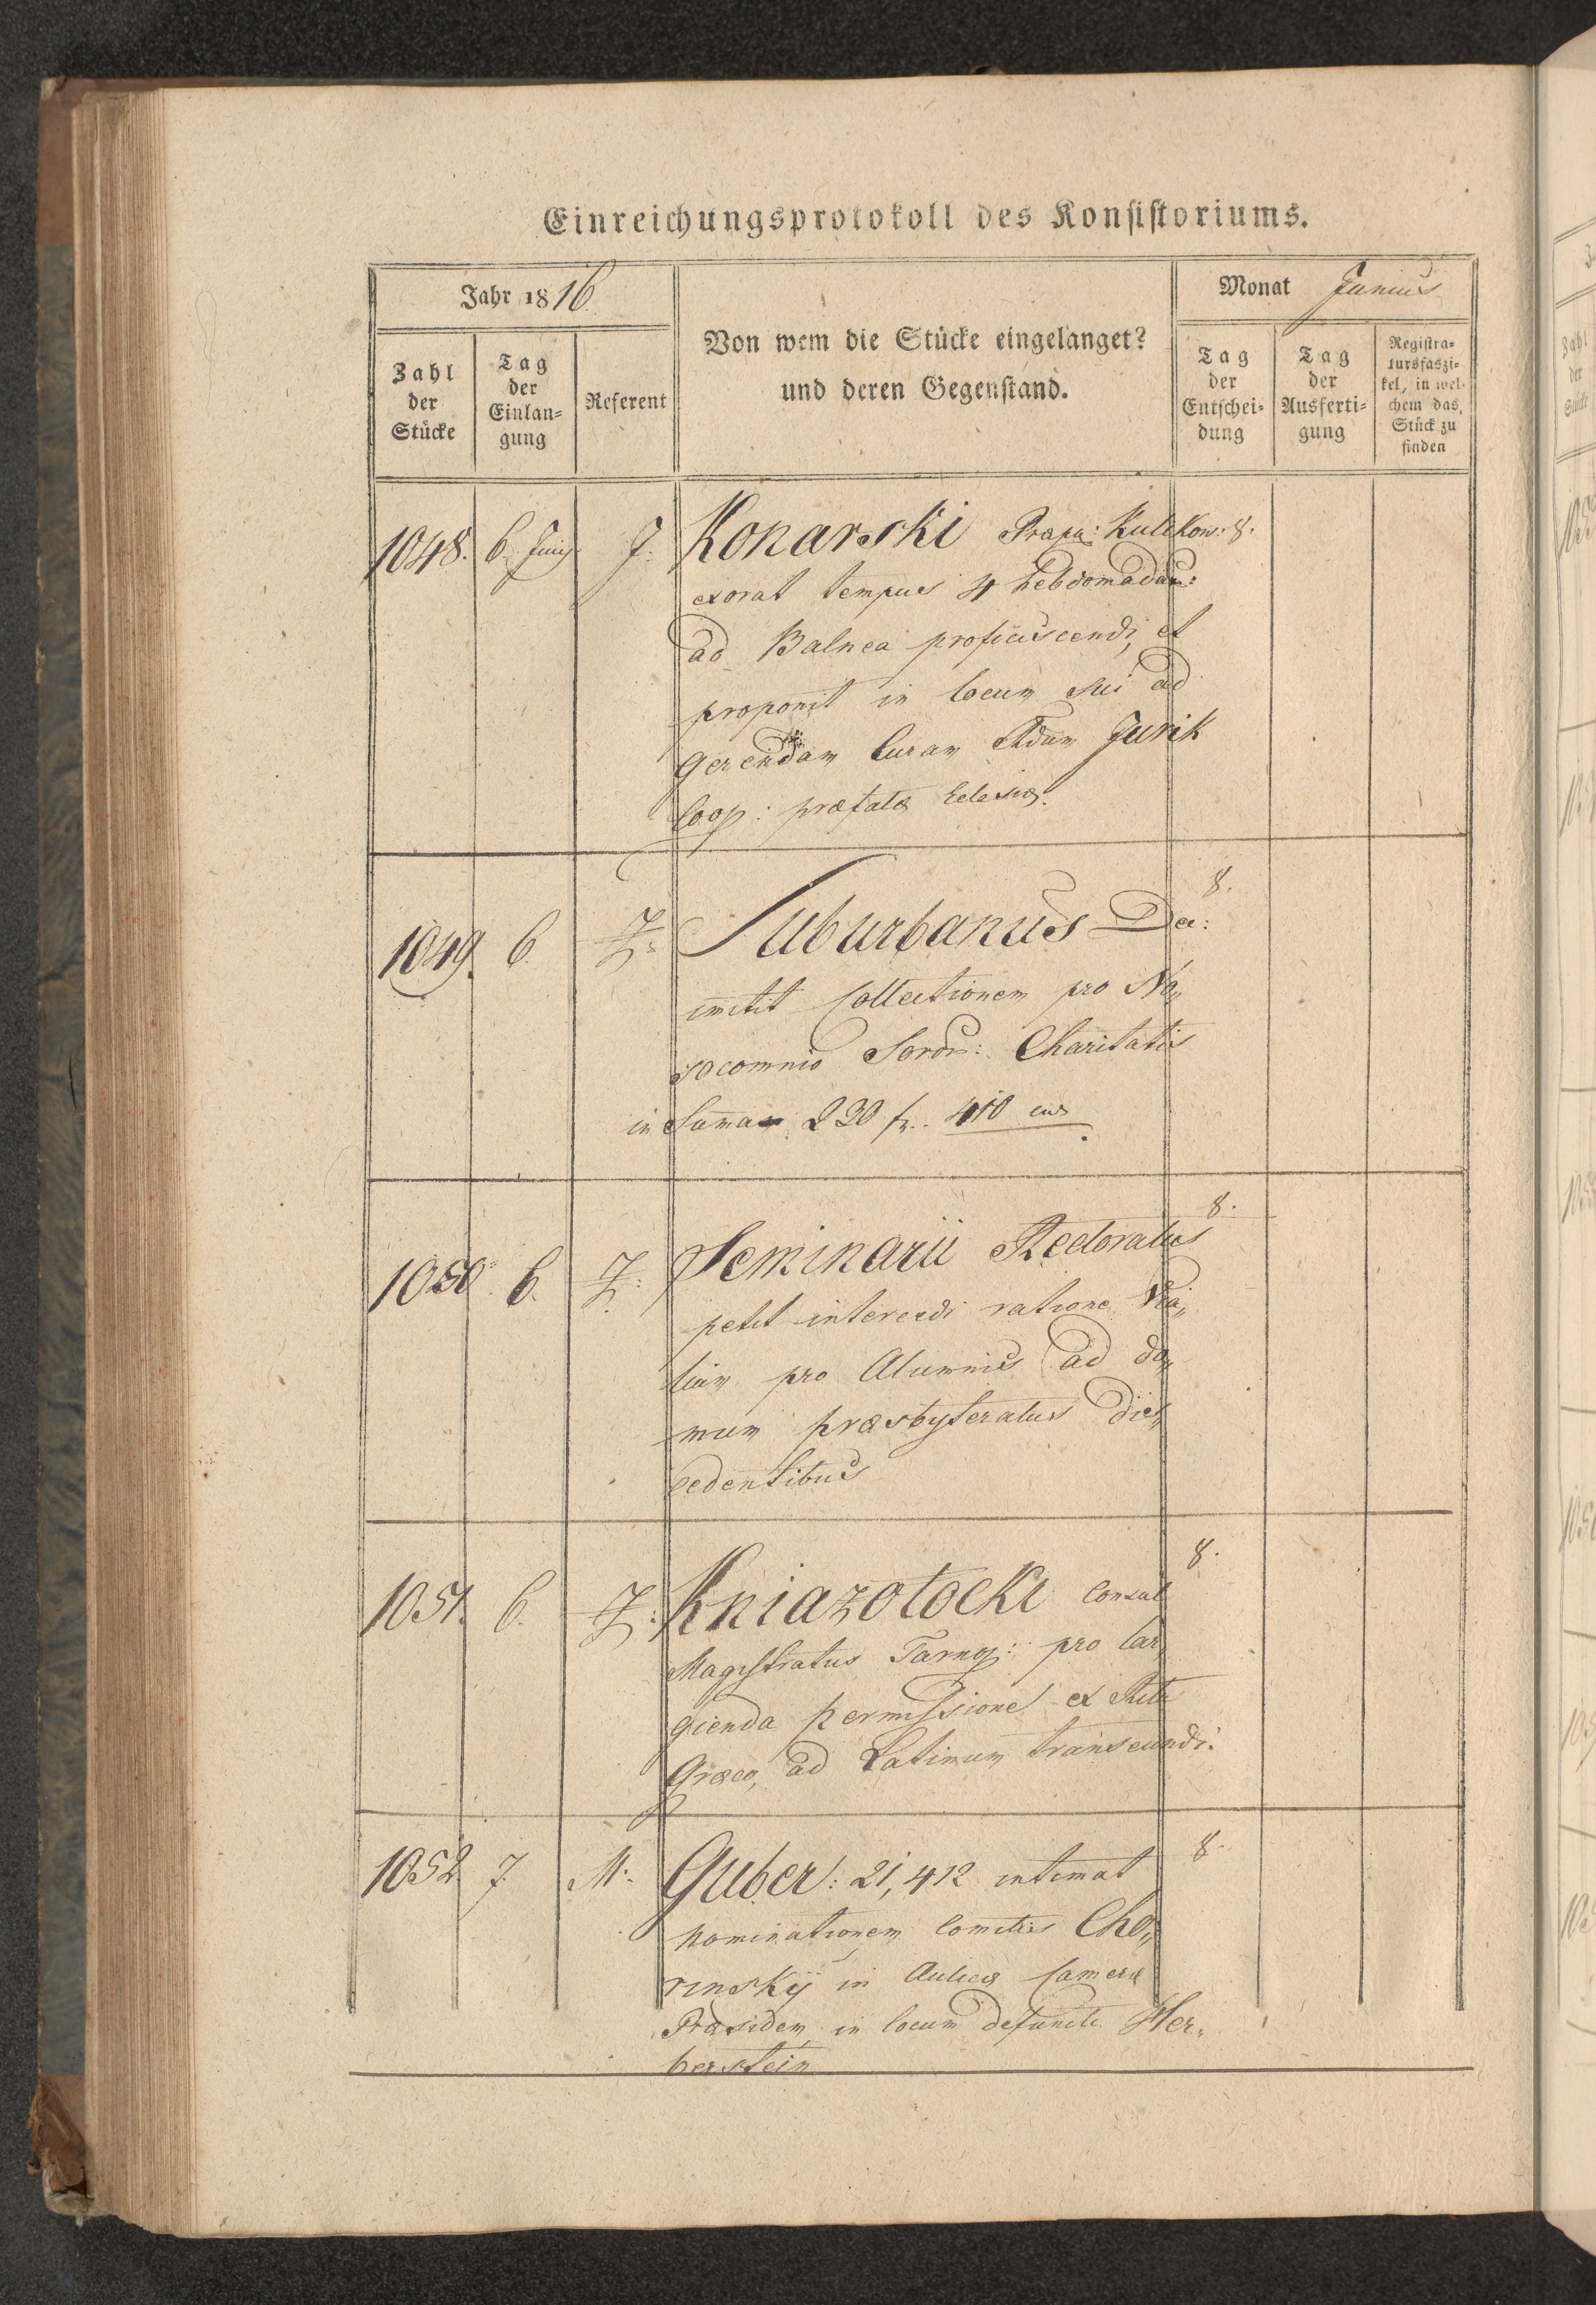 Einreichungsprotokoll des Konsistoriums.
Jahr 1816
Monat Junius
Zahl der Stücke
Tag der Einlan= gung
Referent
Von wem die Stücke eingelanget?
und deren Gegenstand.
Tag der Entschei= dung
Tag der Ausferti= gung
Registra= tursfaszi= kel, in wel= chem das Stück zu finden
1048. 6. Junij J: Konarski Præp: Kulikow: 8.
exorat tempus 4 hebdomadar:
ad Balnea proficiscendi, et
proponit in locum sui ad
gerendam Curam Adam Jurik
Coop: præfatæ Eclesiæ.
1049. 6. Z: Suburbanus Dec: 8.
imittit Collectionem pro No„
socomnio Soror: Charitatis
in Suma 230 fr. 410 cur
1050. 6. Z: Seminarii Rectoratus 8.
petit intercedi ratione Via„
tium pro Alumnis ad do„
mum præsbyteratus dis„
cedentibus
1051. 6. Z: Kniazotocki Consul 8.
Magistratus Tarnop: pro lar„
gienda permissione ex Ritu
Græco, ad Latinum transeundi.
1052. 7. M: Guber: 21,412 intimat 8.
nominationem Comitis Cho„
rinskÿ in Aulicæ Cameræ
Præsidem in locum defuncti Her„
berstein